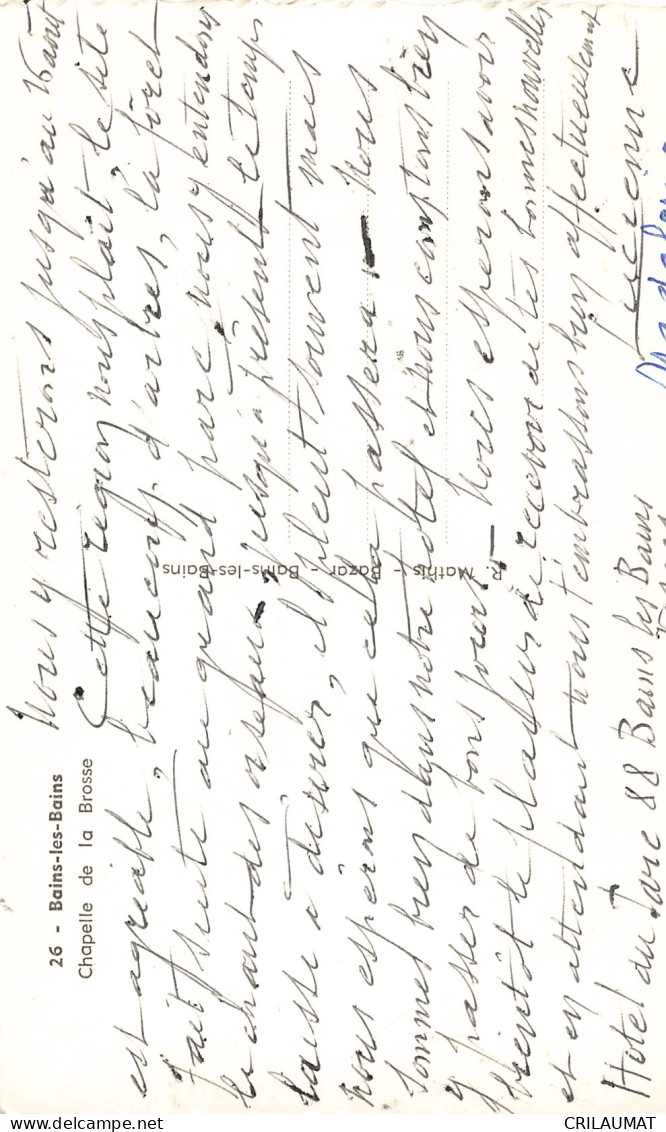 26 - Bains-les-Bains
Chapelle de la Brosse
Nous y resterons jusqu'au 16 août
Cette région nous plaît le site
est agréable, beaucoup d'arbres, la fôret
fait suite au grand parc nous y entendons
le chant des oiseaux, jusqu'à présent le temps
laisse à désirer, il pleut souvent mais
nous espérons que cela passera. Nous
sommes bien dans notre hotel et nous comptons bien
y passer de bons jours — Nous esperons avoir
bientôt le plaisir de recevoir de tes bonnes nouvelles
et en attendant nous t'embrassons bien affectueusement
Lucienne
Hotel du Parc 88 Bains les Bains
R. Mathis - Bazar - Bains-les-Bains
CRILAUMAT